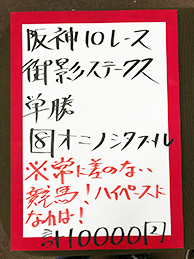 阪神10レース
御影ステークス
単勝
⑧オニノシタブル
※常に差のない
競馬！ハイペースに
なれば！
計10000円